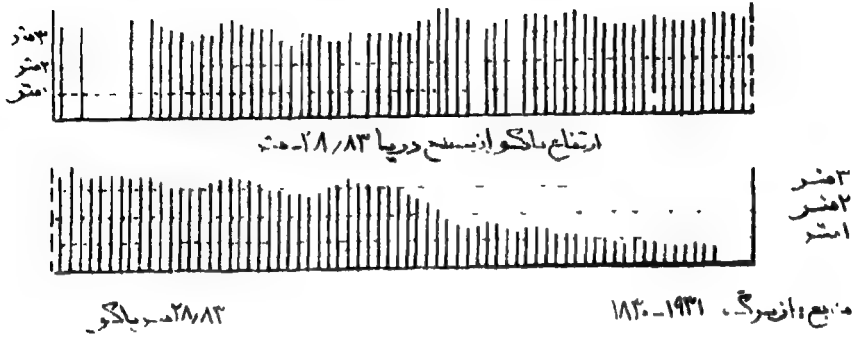 ۳متر
۲متر
۱متر
ارتفاع باکو از سطح دریا ۲۸٫۸۳- متر
۳متر
۲متر
۱متر
منبع: از ۱۹۳۱-۱۸۳۰
۲۸٫۸۳- متر باکو